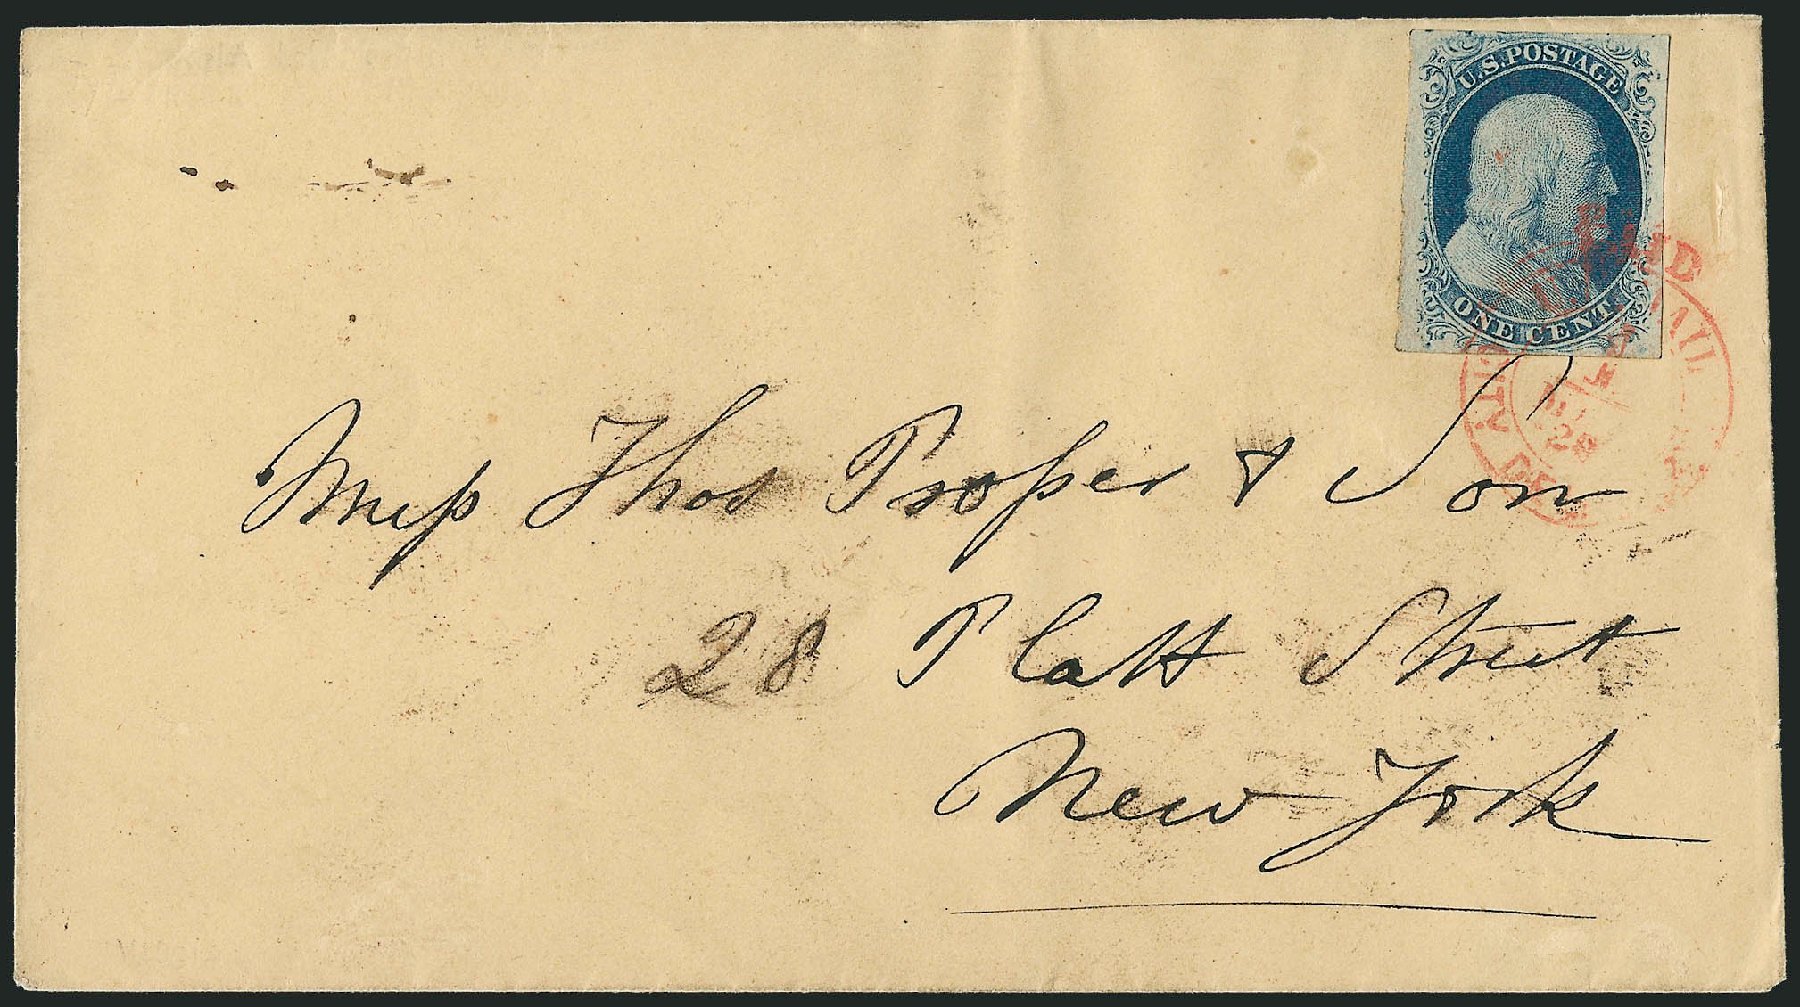 U.S. POSTAGE
ONE CENT.
PAID
MAIL
28
Mess Thos Prosser & Son
28 Platt Street
New York